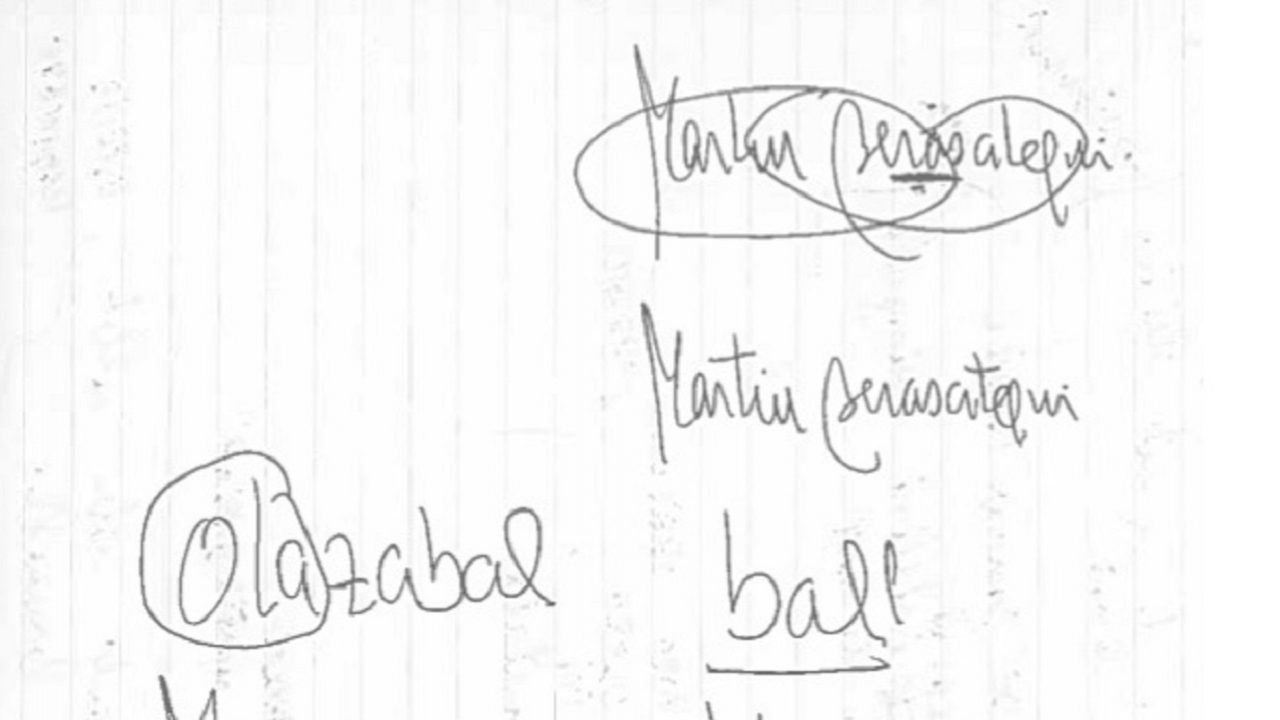 Martin Berasategui.
Martin Berasategui
Olazabal
ball